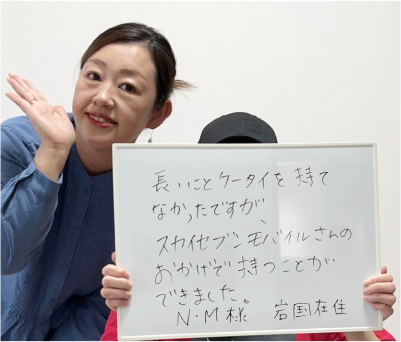 長いことケータイを持て
なかったですが、
スカイセブンモバイルさんの
おかげで持つことが
できました。
N・M様 岩国在住